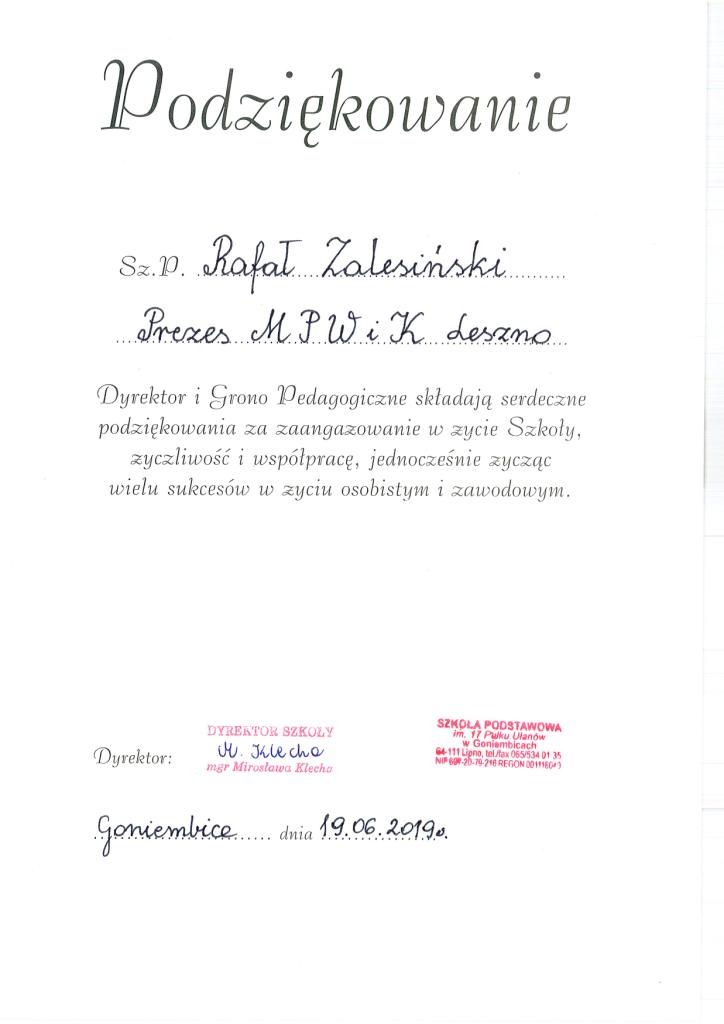 Podziękowanie
Sz.P. Rafał Zalesiński
Prezes M P W i K Leszno
Dyrektor i Grono Pedagogiczne składają serdeczne
podziękowania za zaangazowanie w zycie Szkoły,
zyczliwość i współpracę, jednocześnie zycząc
wielu sukcesów w zyciu osobistym i zawodowym.
DYREKTOR SZKOŁY
Dyrektor: M. Klecha
mgr Mirosława Klecha
SZKOŁA PODSTAWOWA
im. 17 Pułku Ułanów
w Goniembicach
64-111 Lipno, tel./fax 065/534 01 35
NIP 697-20-79-216 REGON
Goniembice..... dnia 19.06.2019r.